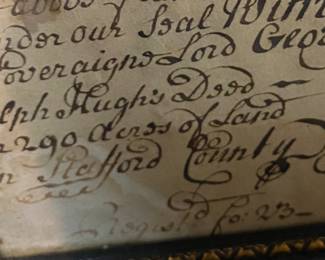 under our Seal Witn
Soveraigne Lord Geor
alph Hughs Deed
290 Acres of Land
in Stafford County
Regist.d fo: 23